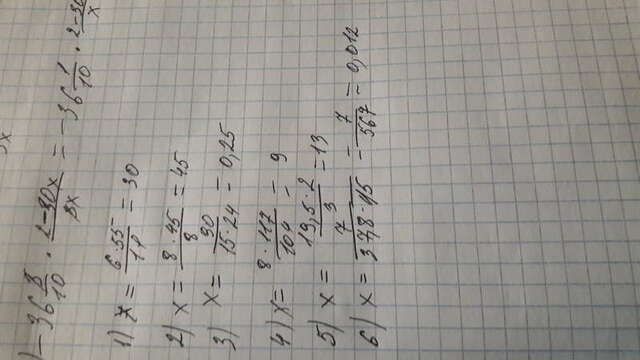 3x
) -36 3/10 · 2-30x/3x = -36 1/10 · 2-30/x
1) x = 6·55/11 = 30
2) x = 8·45/8 = 45
3) x = 90/15·24 = 0,25
4) x = 8·117/104 = 9
5) x = 19,5·2/3 = 13
6) x = 7/37,8·15 = 7/567 = 0,012